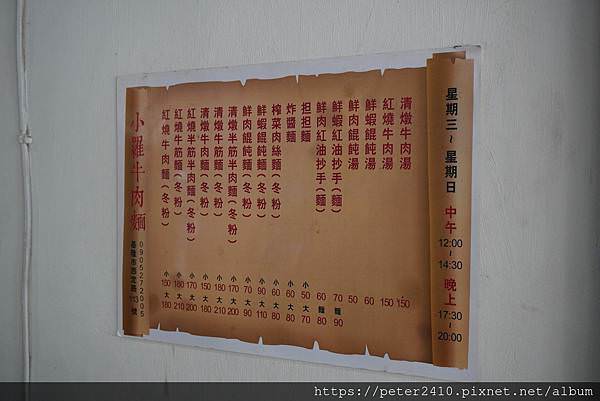 星期三~星期日 中午 12:00~14:30 晚上 17:30~20:00
清燉牛肉湯 150
紅燒牛肉湯 150
鮮蝦餛飩湯 60
鮮肉餛飩湯 50
鮮蝦紅油抄手(麵) 70 麵90
鮮肉紅油抄手(麵) 60 麵80
担担麵 小50 大70
炸醬麵 小60 大80
榨菜肉絲麵(冬粉) 小60 大80
鮮蝦餛飩麵(冬粉) 小90 大110
鮮肉餛飩麵(冬粉) 小70 大90
清燉半筋半肉麵(冬粉) 小170 大200
清燉牛筋麵(冬粉) 小180 大210
清燉牛肉麵(冬粉) 小150 大180
紅燒半筋半肉麵(冬粉) 小170 大200
紅燒牛筋麵(冬粉) 小180 大210
紅燒牛肉麵(冬粉) 小150 大180
小羅牛肉麵
0905272005
基隆市西定路113號
https://peter2410.pixnet.net/album